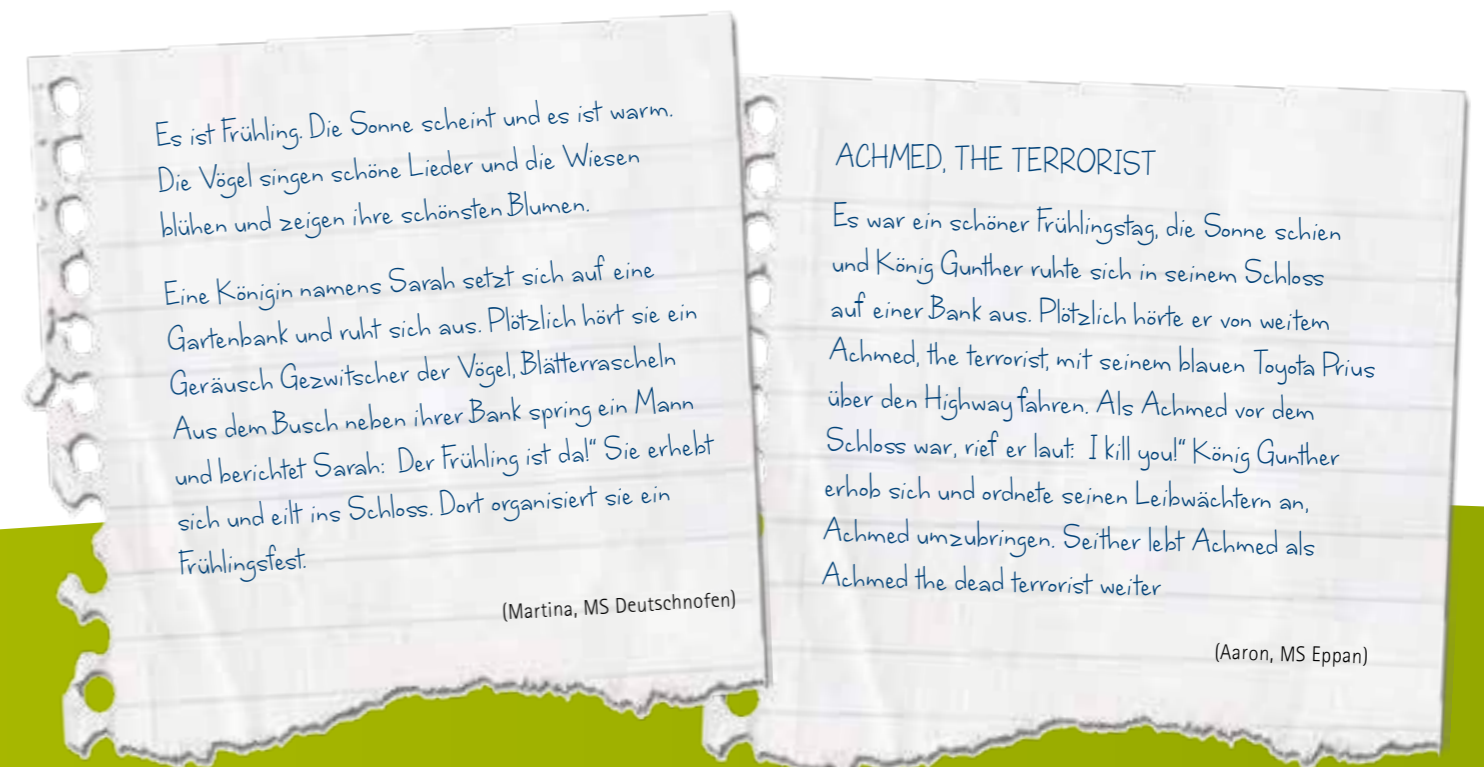 Es ist Frühling. Die Sonne scheint und es ist warm.
Die Vögel singen schöne Lieder und die Wiesen
blühen und zeigen ihre schönsten Blumen.
Eine Königin namens Sarah setzt sich auf eine
Gartenbank und ruht sich aus. Plötzlich hört sie ein
Geräusch Gezwitscher der Vögel, Blätterrascheln
Aus dem Busch neben ihrer Bank spring ein Mann
und berichtet Sarah: Der Frühling ist da!“ Sie erhebt
sich und eilt ins Schloss. Dort organisiert sie ein
Frühlingsfest.
(Martina, MS Deutschnofen)
ACHMED, THE TERRORIST
Es war ein schöner Frühlingstag, die Sonne schien
und König Gunther ruhte sich in seinem Schloss
auf einer Bank aus. Plötzlich hörte er von weitem
Achmed, the terrorist, mit seinem blauen Toyota Prius
über den Highway fahren. Als Achmed vor dem
Schloss war, rief er laut: I kill you!“ König Gunther
erhob sich und ordnete seinen Leibwächtern an,
Achmed umzubringen. Seither lebt Achmed als
Achmed the dead terrorist weiter
(Aaron, MS Eppan)